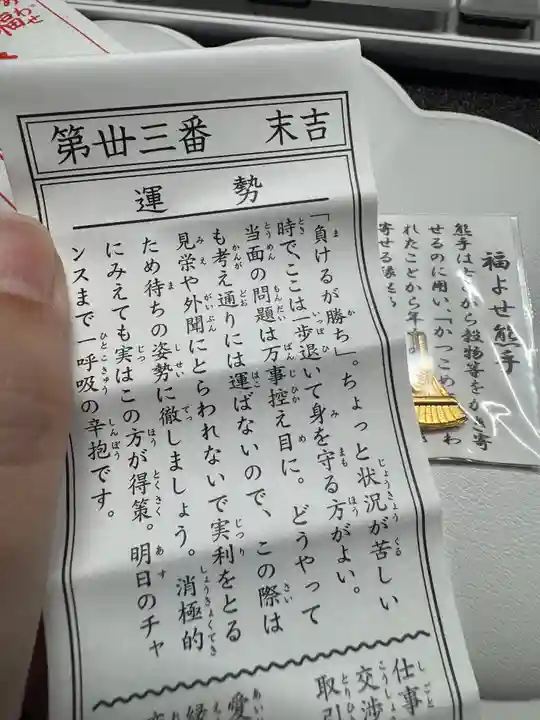 第丗三番　末吉
運勢
「負けるが勝ち」。ちょっと状況が苦しい
時で、ここは一歩退いて身を守る方がよい。
当面の問題は万事控え目に。どうやって
も考え通りには運ばないので、この際は
見栄や外聞にとらわれないで実利をとる
ため待ちの姿勢に徹しましょう。消極的
にみえても実はこの方が得策。明日のチャ
ンスまで一呼吸の辛抱です。
仕事
交渉
取引
愛
縁
福よせ熊手
熊手は
から穀物等をかき寄
せるのに用い、「かっこめ
れたことから年
寄せる